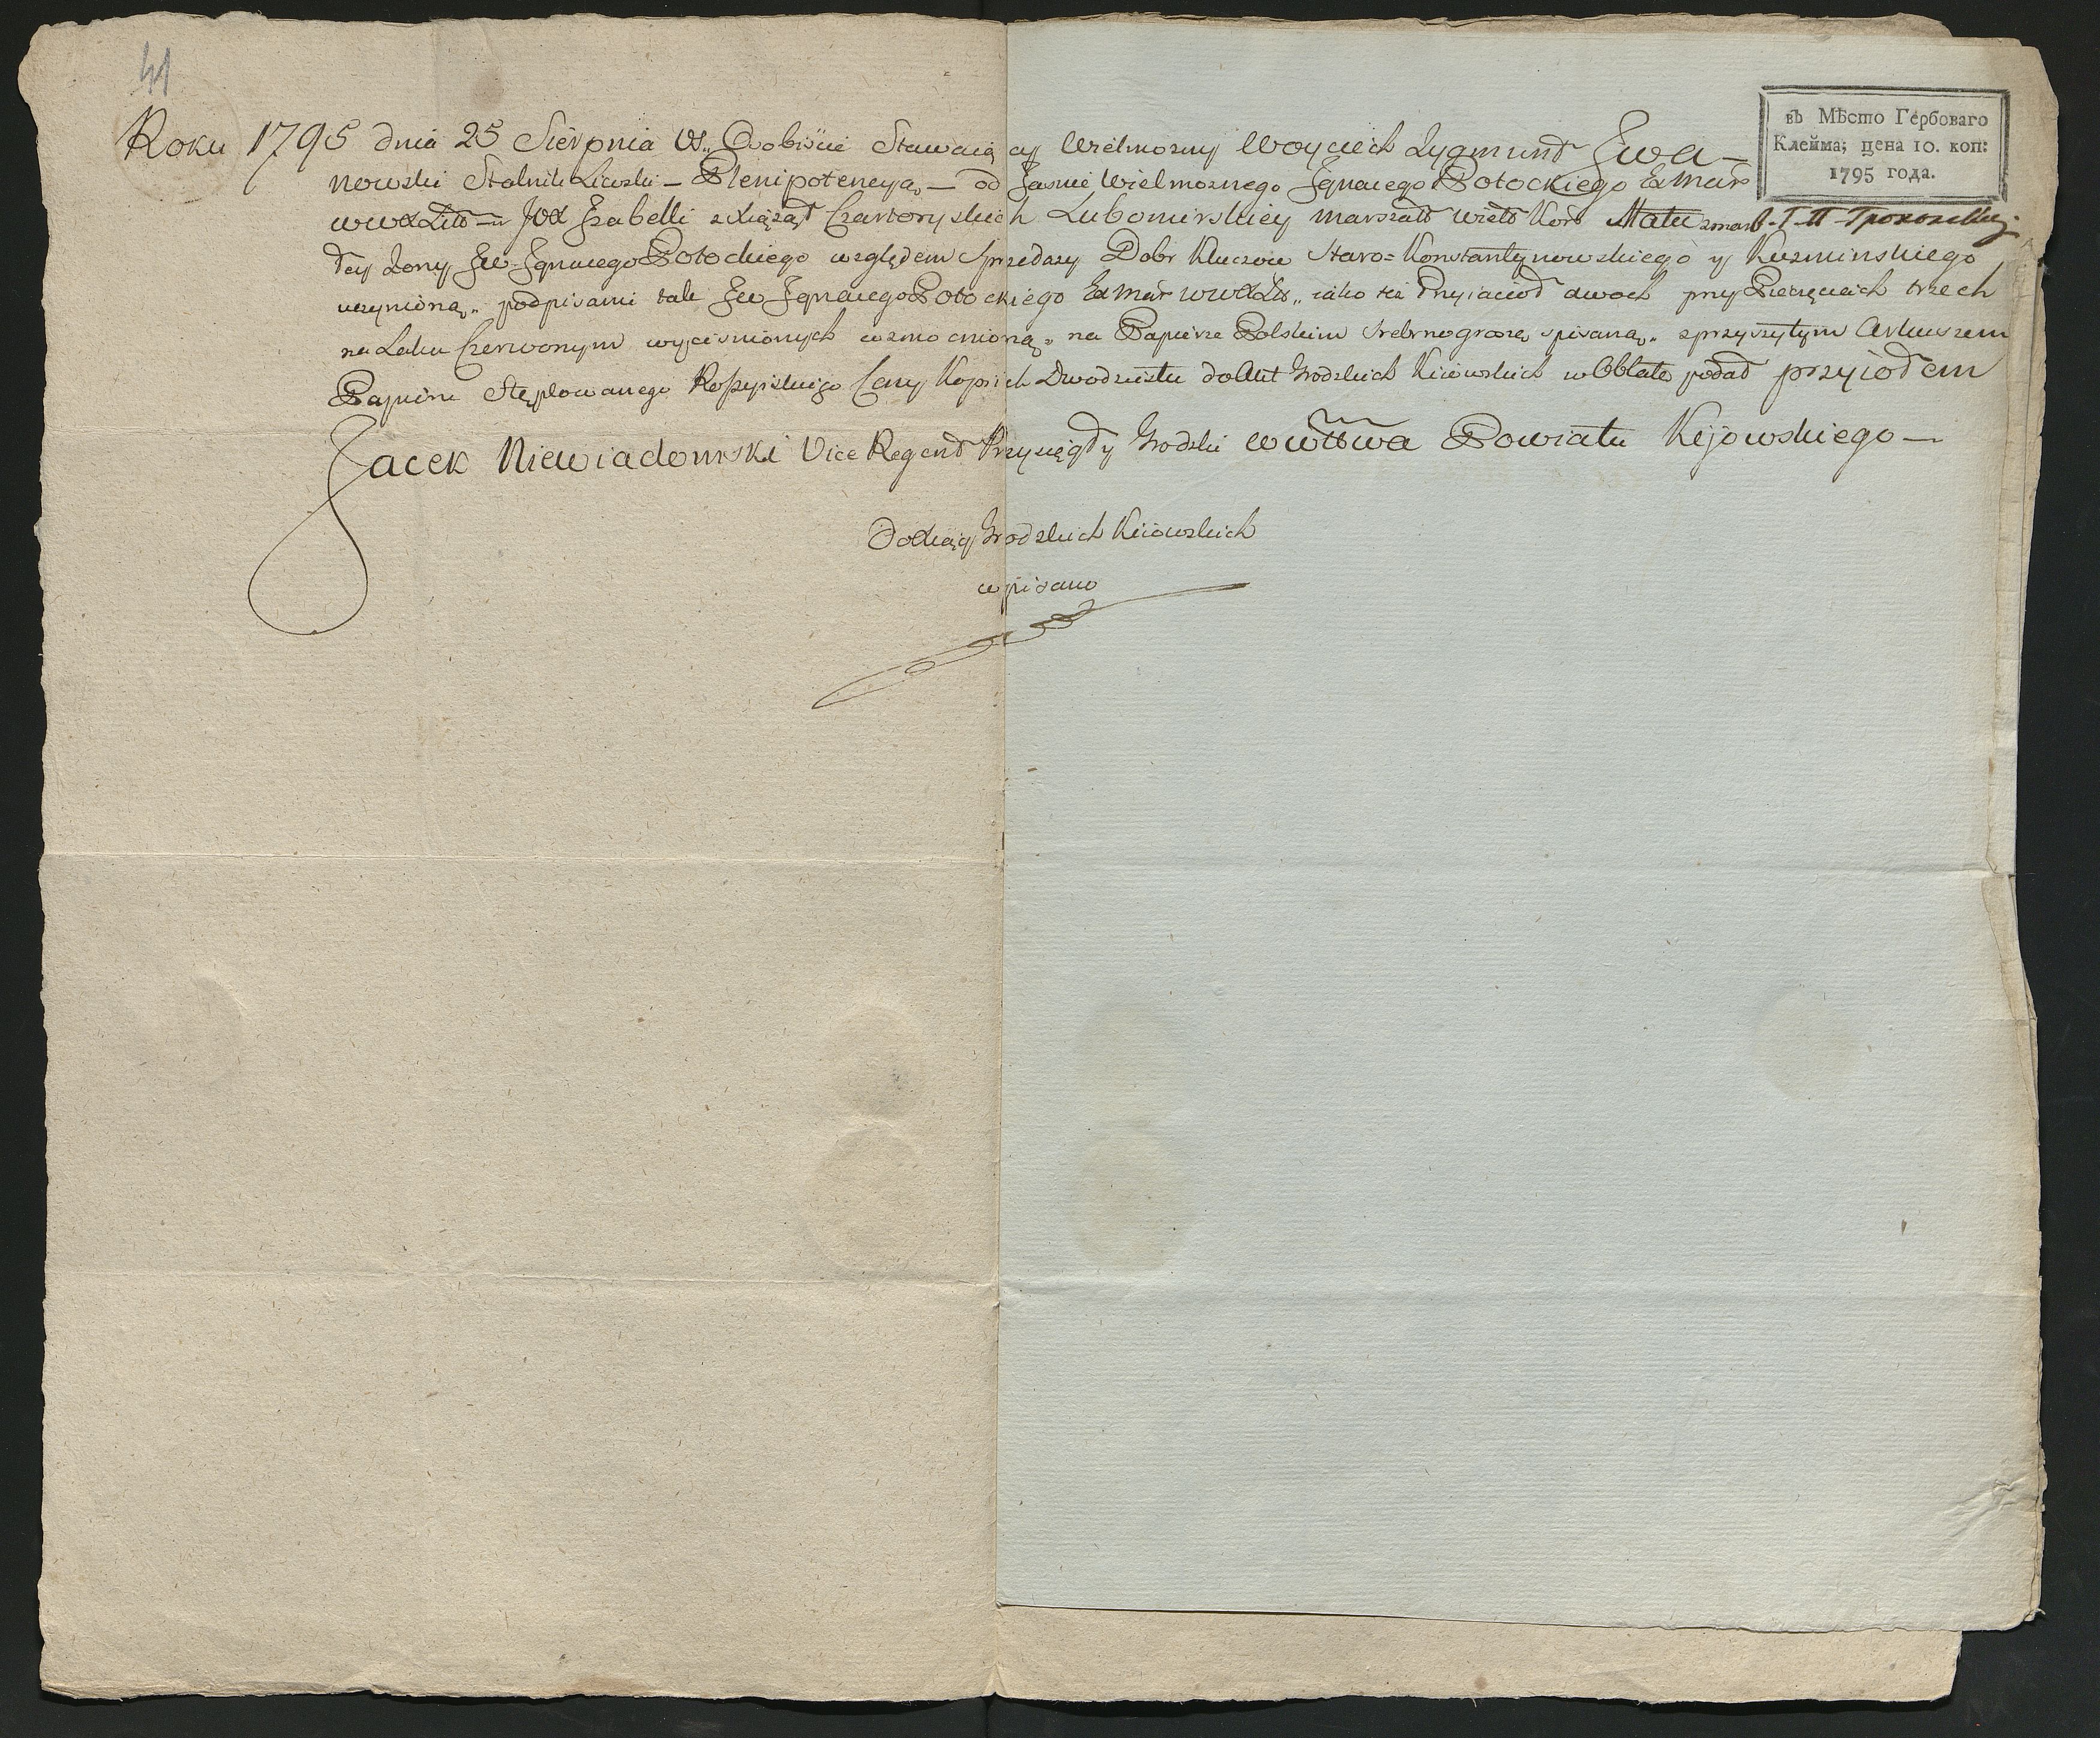 41
въ Мѣсто Гербоваго
Клейма; цена 10. коп:
1795 года.
Roku 1795 dnia 25 Sierpnia VS,, Osobiście Stawaiący Wielmożny Woyciech Zygmund Iwa-
nowski Stolnik Liwski – Plenipotencyą, – od Jasnie Wielmożnego Ignacego Potockiego Ex Mar
WWXLitt – JOX Izabelli z Xiążąt Czartoryskich Lubomirskiey Marszałł Wielk Kor Matce zmar-
łey Żony JW Ignacego Potockiego względem Sprzedaży Dobr Kluczow Staro=Konstantynowskiego y Kuzminskiego
uczynioną,, podpisami tak JW Ignacego Potockiego Ex Mar WWXLit,, iako też Przyiacioł dwoch przy Pieczęciach trzech
na Laku Czerwonym wyciśnionych wzmocnioną,, na Papierze Polskim Srebrnogroszą spisaną,, z przyszytym Arkuszem
Papieru Stęplowanego Rossyiskiego Cany Kopiiek Dwadziestu do Akt Grodzkich Kiiowskich w Oblatę podał przyiołem
Jacek Niewiadomski Vice Regent Przysięgły Grodzki Wwttwa Powiatu Kijowskiego –
Do Xiąg Grodzkich Kiiowskich
wpisano